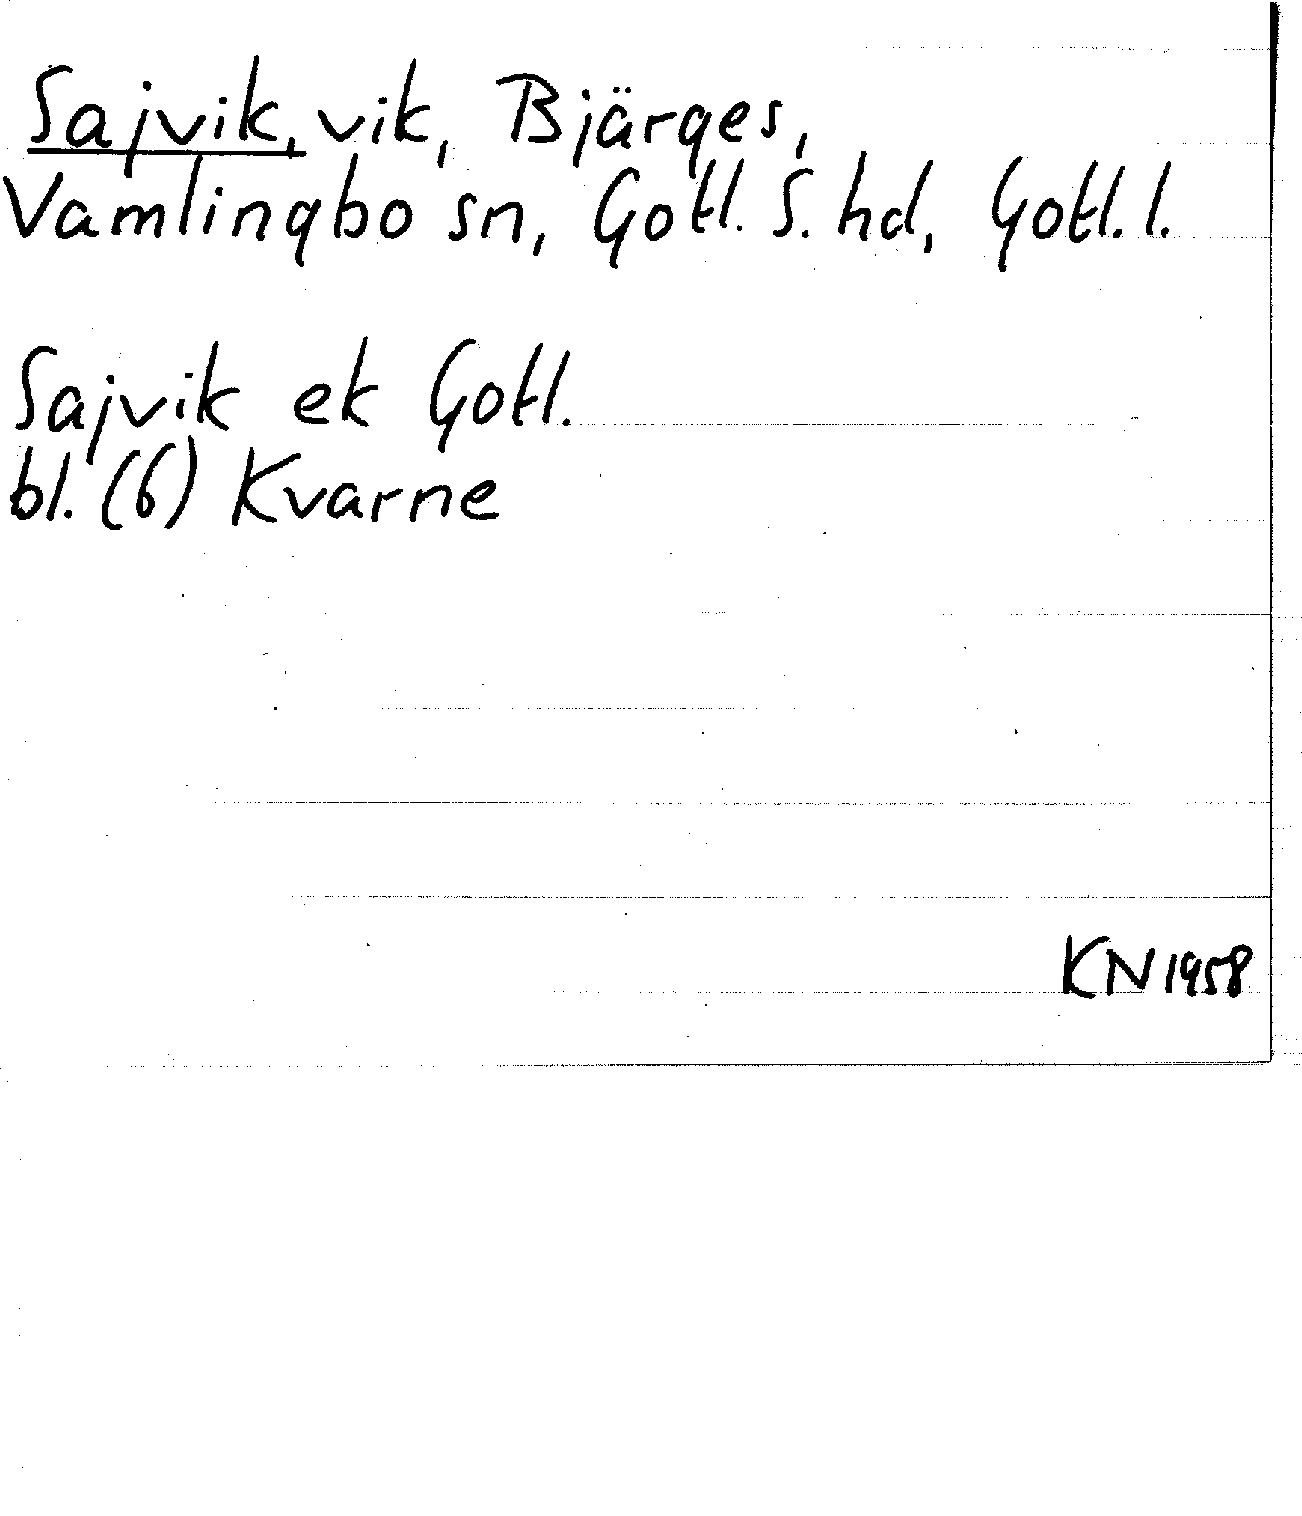 Sajvik, vik, Bjärges,
Vamlingbo sn, Gotl. S. hd, Gotl. l.
Sajvik ek Gotl.
bl. (6) Kvarne
KN 1958